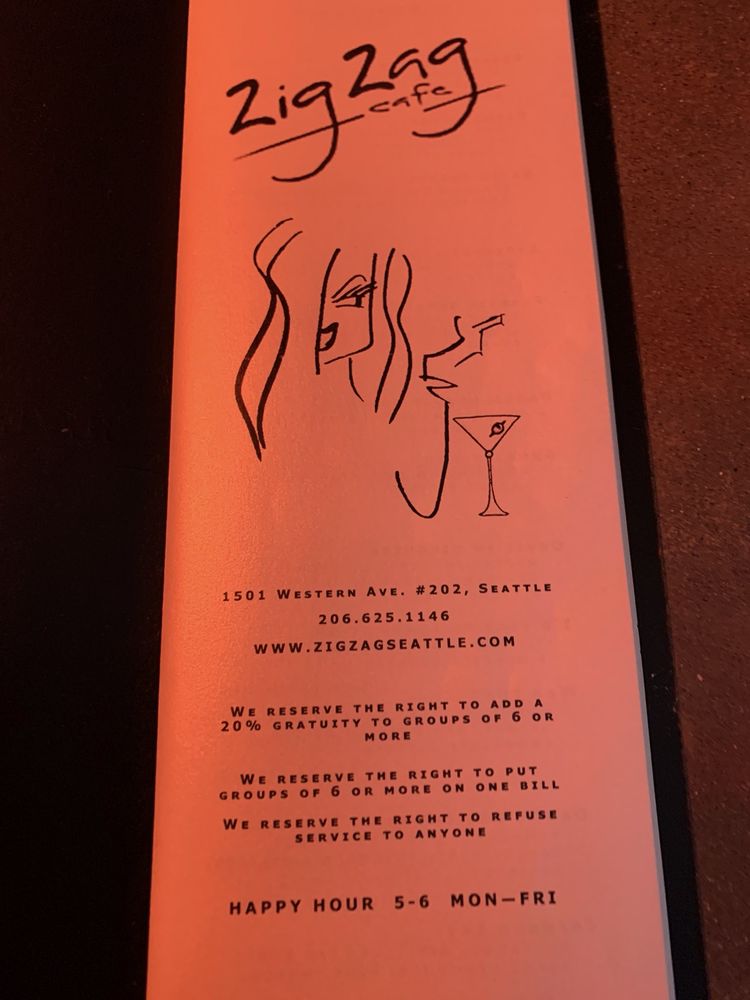 ZigZag
cafe
1501 Western Ave. #202, Seattle
206.625.1146
www.zigzagseattle.com
We reserve the right to add a
20% gratuity to groups of 6 or
more
We reserve the right to put
groups of 6 or more on one bill
We reserve the right to refuse
service to anyone
HAPPY HOUR 5-6 MON—FRI